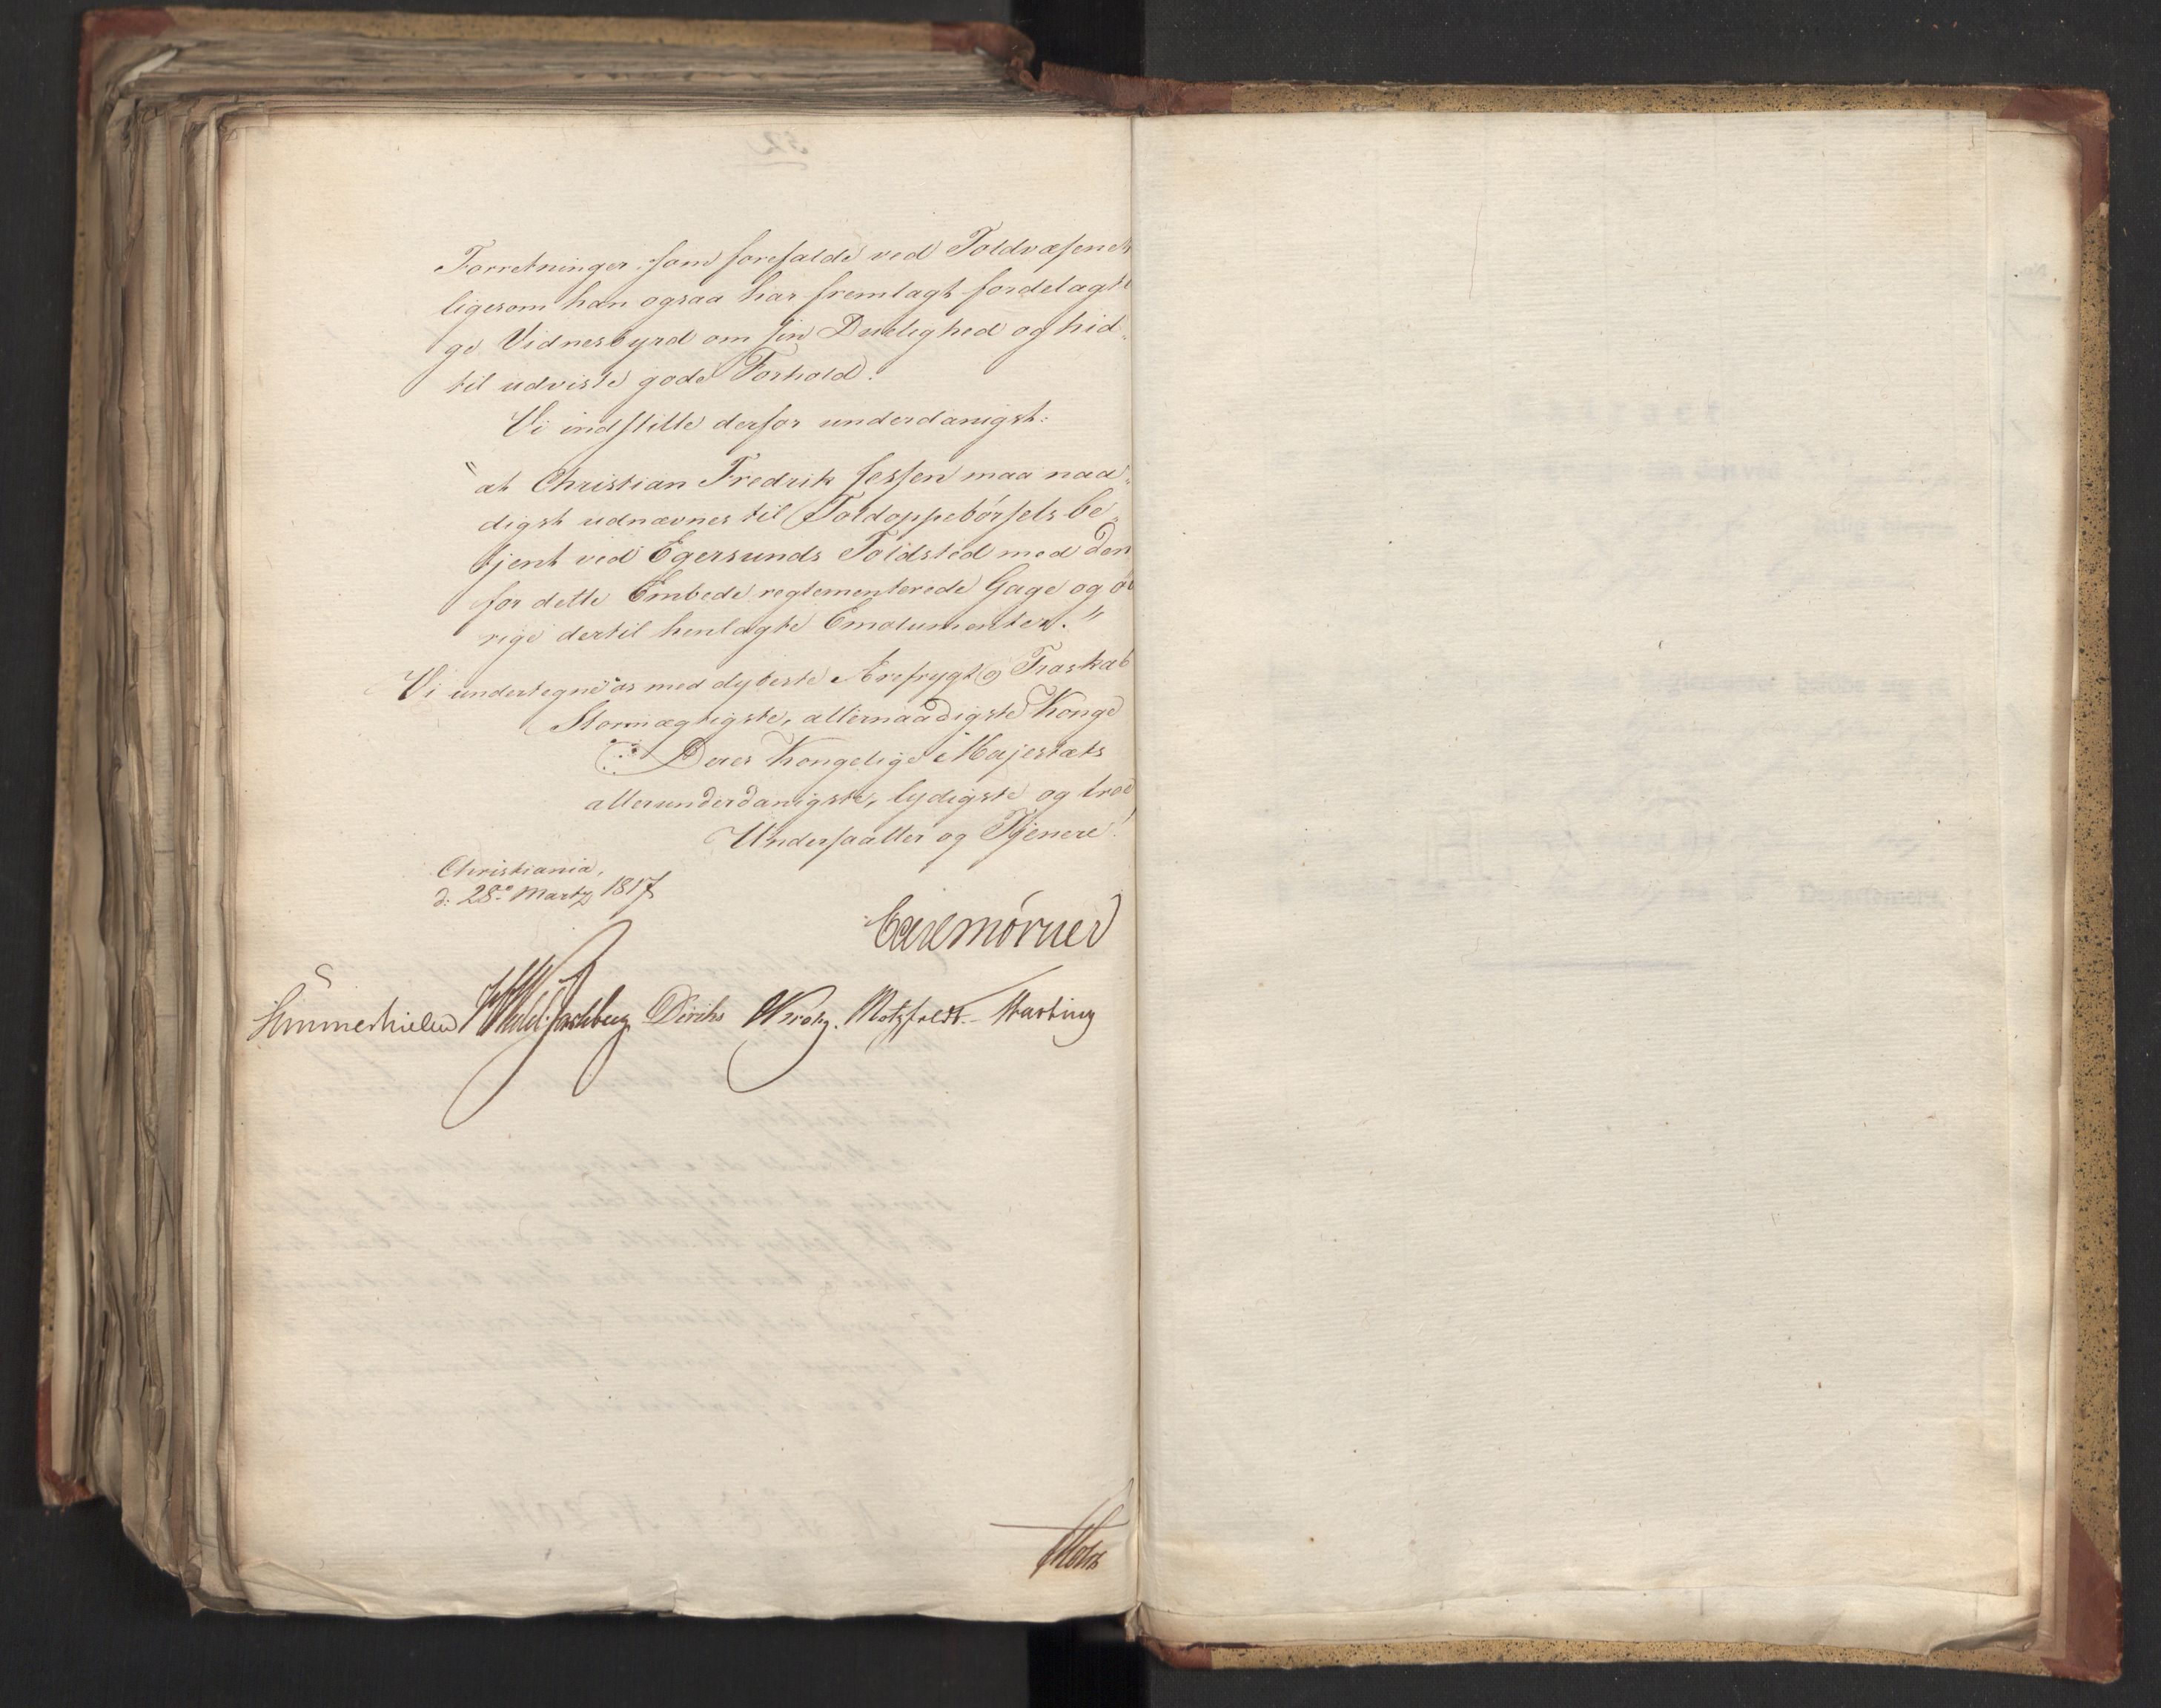 Forretninger, som forefalde ved Toldvæsenet
ligesom han ogsaa har fremlagt fordelagti
ge Vidnesbyrd om sin Duelighed og hid„
til udviste gode Forhold.
Vi indstille derfor underdanigst:
"at Christian Fredrik Jessen maa naa„
digst udnævnes til Toldoppebørselsbe„
tjent ved Egersunds Toldsted med den
for dette Embede reglementerede Gage og øv
rige dertil henlagte Emolumenter."
Vi undertegne os med dybeste Ærefrygt og Troskab
Stormægtigste, allernaadigste Konge
Deres Kongelige Majestæts
allerunderdanigste, lydigste og troe
Undersaatter og Tjenere!
Christiania,
d: 28de Martz 1817
Carl Mörner
Sommerhielm Wedel Jarlsberg Diriks Krohg. Motzfeldt.